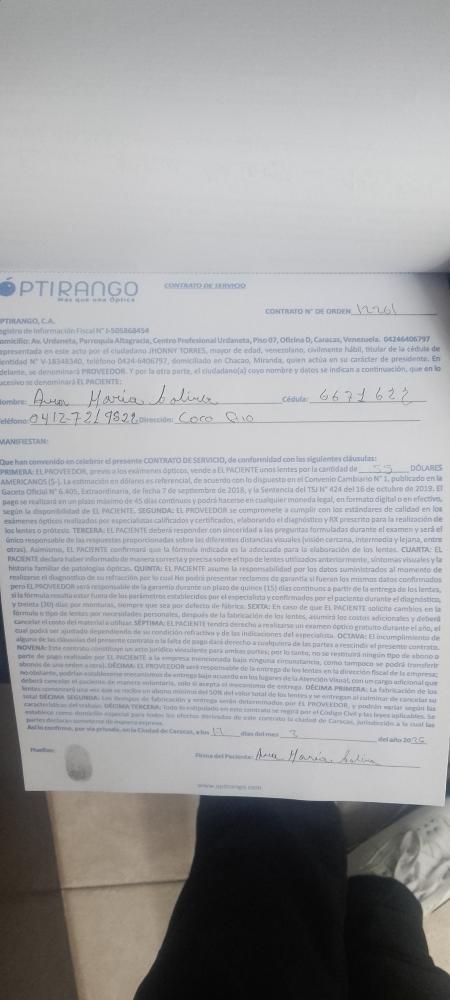 ÓPTIRANGO
Más que una Óptica
CONTRATO DE SERVICIO
CONTRATO N° DE ORDEN 12261
PTIRANGO, C.A.
egistro de Información Fiscal N° J-505868454
omicilio: Av. Urdaneta, Parroquia Altagracia, Centro Profesional Urdaneta, Piso 07, Oficina D, Caracas, Venezuela. 04246406797
epresentada en este acto por el ciudadano JHONNY TORRES, mayor de edad, venezolano, civilmente hábil, titular de la cédula de
dentidad N° V-18348340, teléfono 0424-6406797, domiciliado en Chacao, Miranda, quien actúa en su carácter de presidente. En
delante, se denominará PROVEEDOR. Y por la otra parte, el ciudadano(a) cuyo nombre y datos se indican a continuación, que en lo
ucesivo se denominará EL PACIENTE:
Nombre: Ana Maria Cédula:
Teléfono: Dirección: Coco
MANIFIESTAN:
Que han convenido en celebrar el presente CONTRATO DE SERVICIO, de conformidad con las siguientes cláusulas:
PRIMERA: EL PROVEEDOR, previo a los exámenes ópticos, vende a EL PACIENTE unos lentes por la cantidad de 55 DÓLARES
AMERICANOS ($-). La estimación en dólares es referencial, de acuerdo con lo dispuesto en el Convenio Cambiario N° 1, publicado en la
Gaceta Oficial N° 6.405, Extraordinaria, de fecha 7 de septiembre de 2018, y la Sentencia del TSJ N° 424 del 16 de octubre de 2019. El
pago se realizará en un plazo máximo de 45 días continuos y podrá hacerse en cualquier moneda legal, en formato digital o en efectivo,
según la disponibilidad de EL PACIENTE. SEGUNDA: EL PROVEEDOR se compromete a cumplir con los estándares de calidad en los
exámenes ópticos realizados por especialistas calificados y certificados, elaborando el diagnóstico y RX prescrito para la realización de
los lentes o prótesis. TERCERA: EL PACIENTE deberá responder con sinceridad a las preguntas formuladas durante el examen y será el
único responsable de las respuestas proporcionadas sobre las diferentes distancias visuales (visión cercana, intermedia y lejana, entre
otras). Asimismo, EL PACIENTE confirmará que la fórmula indicada es la adecuada para la elaboración de los lentes. CUARTA: EL
PACIENTE declara haber informado de manera correcta y precisa sobre el tipo de lentes utilizados anteriormente, síntomas visuales y la
historia familiar de patologías ópticas. QUINTA: EL PACIENTE asume la responsabilidad por los datos suministrados al momento de
realizarse el diagnostico de su refracción por lo cual No podrá presentar reclamos de garantía si fueran los mismos datos confirmados
pero EL PROVEEDOR será responsable de la garantía durante un plazo de quince (15) días continuos a partir de la entrega de los lentes,
si la fórmula resulta estar fuera de los parámetros establecidos por el especialista y confirmados por el paciente durante el diagnóstico,
y treinta (30) días por monturas, siempre que sea por defecto de fábrica. SEXTA: En caso de que EL PACIENTE solicite cambios en la
fórmula o tipo de lentes por necesidades personales, después de la fabricación de los lentes, asumirá los costos adicionales y deberá
cancelar el costo del material a utilizar. SÉPTIMA: EL PACIENTE tendrá derecho a realizarse un examen óptico gratuito durante el año, el
cual podrá ser ajustado dependiendo de su condición refractiva y de las indicaciones del especialista. OCTAVA: El incumplimiento de
alguna de las cláusulas del presente contrato o la falta de pago dará derecho a cualquiera de las partes a rescindir el presente contrato.
NOVENA: Este contrato constituye un acto jurídico vinculante para ambas partes; por lo tanto, no se restituirá ningún tipo de abono o
parte de pago realizado por EL PACIENTE a la empresa mencionada bajo ninguna circunstancia, como tampoco se podrá transferir
abonos de una orden a otra. DÉCIMA: EL PROVEEDOR será responsable de la entrega de los lentes en la dirección fiscal de la empresa;
no obstante, podrían establecerse mecanismos de entrega bajo acuerdo en los lugares de la Atención Visual, con un cargo adicional que
deberá cancelar el paciente de manera voluntaria, solo si acepta el mecanismo de entrega. DÉCIMA PRIMERA: La fabricación de los
lentes comenzará una vez que se reciba un abono mínimo del 50% del valor total de los lentes y se entregan al culminar de cancelar su
total DÉCIMA SEGUNDA: Los tiempos de fabricación y entrega serán determinados por EL PROVEEDOR, y podrán variar según las
características del trabajo. DÉCIMA TERCERA: Todo lo estipulado en este contrato se regirá por el Código Civil y las leyes aplicables. Se
establece como domicilio especial para todos los efectos derivados de este contrato la ciudad de Caracas, jurisdicción a la cual las
partes declaran someterse de manera expresa.
Así lo confirmo, por vía privada, en la Ciudad de Caracas, a los 17 días del mes 3 del año 20
Huellas:
Firma del Paciente: Ana Maria
www.optirango.com